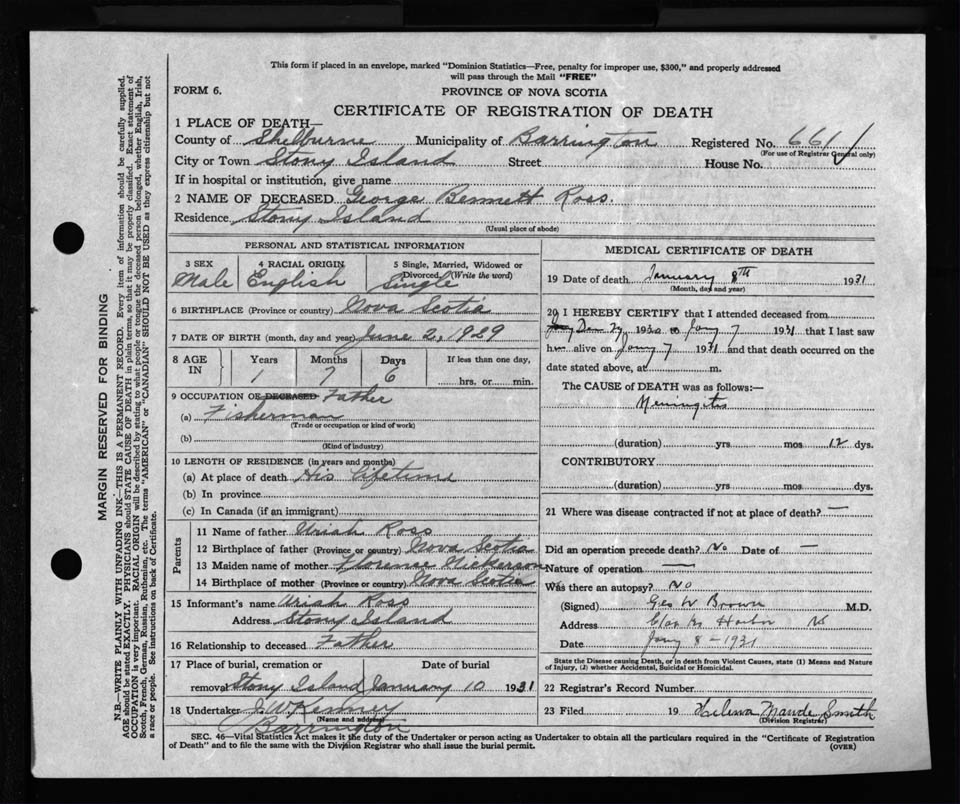 This form if placed in an envelope, marked "Dominion Statistics—Free, penalty for improper use, $300," and properly addressed
will pass through the Mail "FREE"
FORM 6.
PROVINCE OF NOVA SCOTIA
CERTIFICATE OF REGISTRATION OF DEATH
1 PLACE OF DEATH—
County of Shelburne Municipality of Barrington Registered No. 661
(For use of Registrar General only)
City or Town Stony Island Street House No.
If in hospital or institution, give name
2 NAME OF DECEASED George Bennett Ross.
Residence Stony Island
(Usual place of abode)
PERSONAL AND STATISTICAL INFORMATION
3 SEX 4 RACIAL ORIGIN 5 Single, Married, Widowed or
Divorced (Write the word)
Male English Single
6 BIRTHPLACE (Province or country) Nova Scotia
7 DATE OF BIRTH (month, day and year) June 2, 1929
8 AGE IN Years Months Days If less than one day,
1 7 6 hrs. or min.
9 OCCUPATION OF DECEASED Father
(a) Fisherman
(Trade or occupation or kind of work)
(b)
(Kind of industry)
10 LENGTH OF RESIDENCE (in years and months)
(a) At place of death His Lifetime
(b) In province
(c) In Canada (if an immigrant)
Parents
11 Name of father Uriah Ross
12 Birthplace of father (Province or country) Nova Scotia
13 Maiden name of mother Florence Nickerson
14 Birthplace of mother (Province or country) Nova Scotia
15 Informant's name Uriah Ross
Address Stony Island
16 Relationship to deceased Father
17 Place of burial, cremation or Date of burial
removal Stony Island January 10 1931
18 Undertaker
(Name and address)
Barrington
MEDICAL CERTIFICATE OF DEATH
19 Date of death January 8th 1931
(Month, day and year)
20 I HEREBY CERTIFY that I attended deceased from
Dec 29 1930 to Jany 7 1931 that I last saw
him alive on Jany 7 1931 and that death occurred on the
date stated above, at m.
The CAUSE of DEATH was as follows:—
Meningitis
(duration) yrs mos 12 dys.
CONTRIBUTORY
(duration) yrs. mos. dys.
21 Where was disease contracted if not at place of death? —
Did an operation precede death? No Date of —
Nature of operation —
Was there an autopsy? No
(Signed) Geo W Brown M.D.
Address Harbor NS
Date Jany 8 - 1931
State the Disease causing Death, or in death from Violent Causes, state (1) Means and Nature
of Injury, (2) whether Accidental, Suicidal or Homicidal.
22 Registrar's Record Number
23 Filed 19 Maude Smith
(Division Registrar)
SEC. 46—Vital Statistics Act makes it the duty of the Undertaker or person acting as Undertaker to obtain all the particulars required in the "Certificate of Registration
of Death" and to file the same with the Division Registrar who shall issue the burial permit.
(OVER)
MARGIN RESERVED FOR BINDING
N.B.—WRITE PLAINLY WITH UNFADING INK—THIS IS A PERMANENT RECORD. Every item of information should be carefully supplied.
AGE should be stated EXACTLY. PHYSICIANS should STATE CAUSE OF DEATH in plain terms, so that it may be properly classified. Exact statement of
OCCUPATION is very important. RACIAL ORIGIN will be described by stating to what people or tongue the deceased person belonged, whether English, Irish,
Scotch, French, German, Russian, Ruthenian, etc. The terms "AMERICAN" or "CANADIAN" SHOULD NOT BE USED as they express citizenship but not
a race or people. See instructions on back of Certificate.